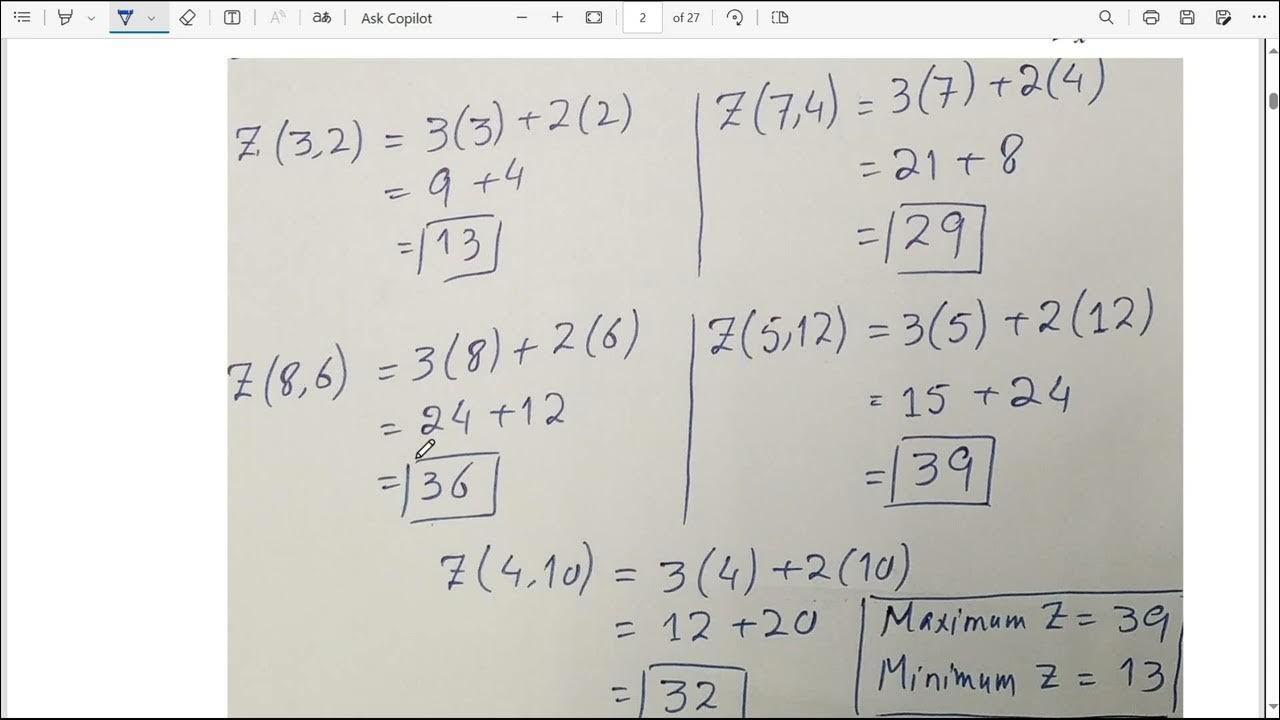 aあ Ask Copilot 2 of 27
x
Z(3,2) = 3(3) + 2(2)
= 9 + 4
= 13
Z(7,4) = 3(7) + 2(4)
= 21 + 8
= 29
Z(8,6) = 3(8) + 2(6)
= 24 + 12
= 36
Z(5,12) = 3(5) + 2(12)
= 15 + 24
= 39
Z(4,10) = 3(4) + 2(10)
= 12 + 20
= 32
Maximum Z = 39
Minimum Z = 13